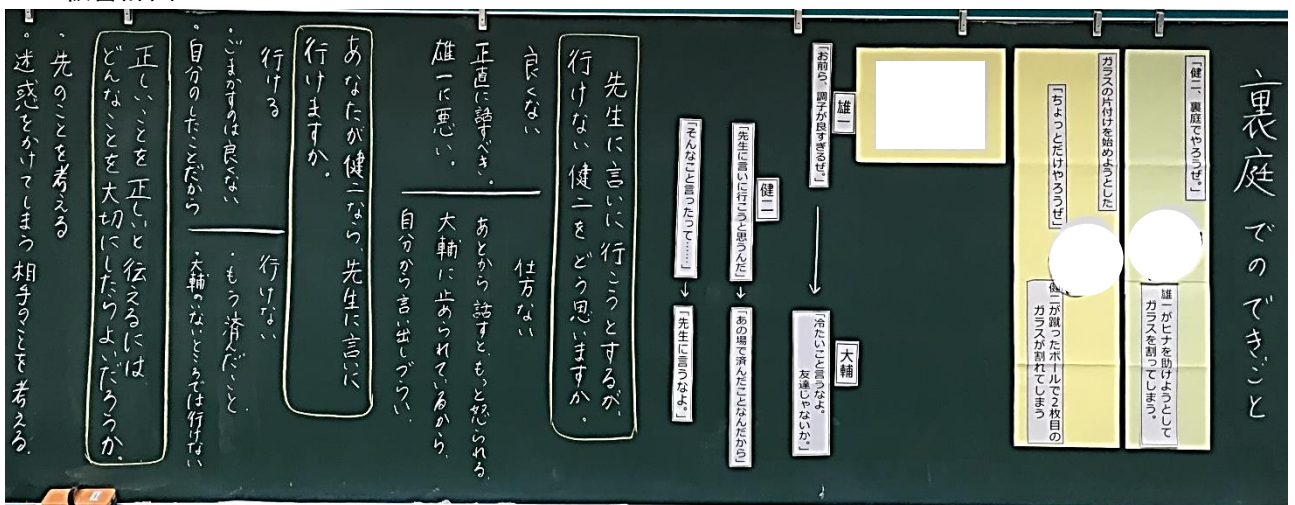 裏庭でのできごと
「健二、裏庭でやろうぜ。」
雄一がヒナを助けようとして
ガラスを割ってしまう。
ガラスの片付けを始めようとした
「ちょっとだけやろうぜ」
健二が蹴ったボールで2枚目の
ガラスが割れてしまう
雄一
「お前ら、調子が良すぎるぜ。」
大輔
「冷たいこと言うなよ。
友達じゃないか。」
健二
「先生に言いに行こうと思うんだ」
「あの場で済んだことなんだから」
「そんなこと言ったって……」
「先生に言うなよ。」
先生に言いに行こうとするが、
行けない健二をどう思いますか。
良くない
正直に話すべき。
雄一に悪い。
仕方ない
あとから話すと、もっと怒られる
大輔に止められているから、
自分から言い出しづらい、
あなたが健二なら、先生に言いに
行けますか。
行ける
・ごまかすのは良くない
・自分のしたことだから
行けない
・もう済んだこと、
・大輔のいないところでは行けない
正しいことを正しいと伝えるには
どんなことを大切にしたらよいだろうか。
・先のことを考える
・迷惑をかけてしまう相手のことを考える、